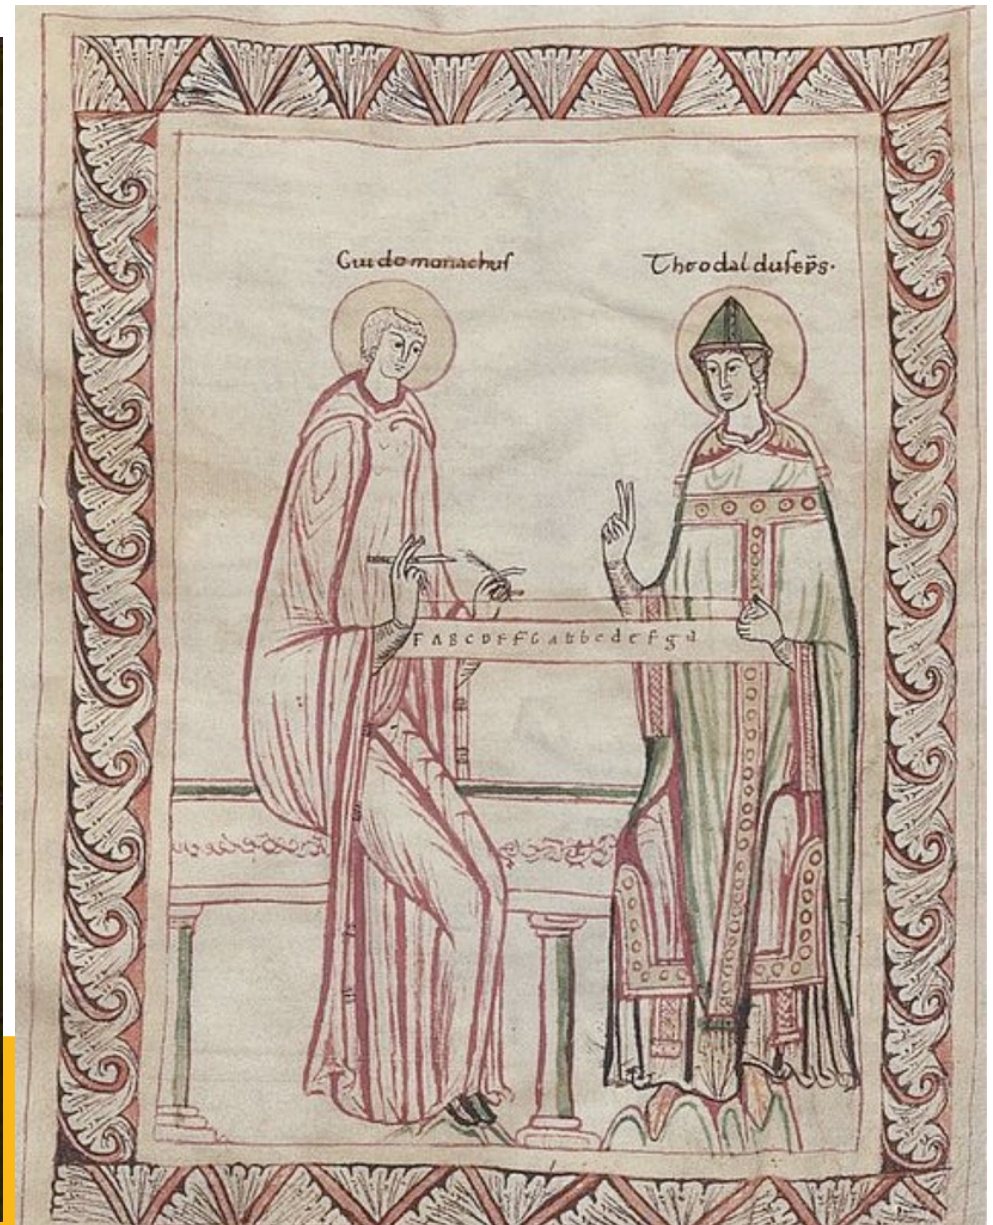 Guido monachus
Theodaldus ep̄s.
Γ A B C D E F G a b ♮ c d e f g a